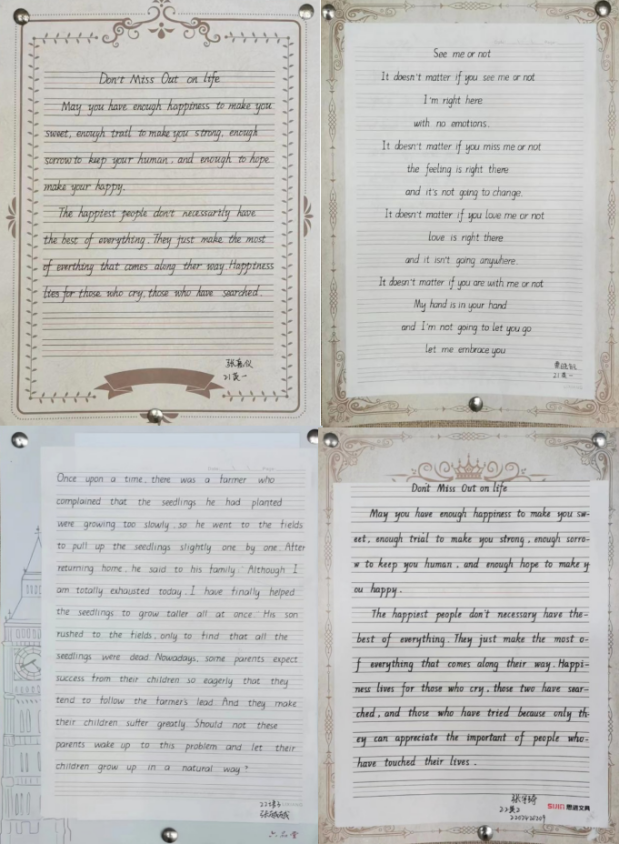 Don't Miss Out on life
May you have enough happiness to make you
sweet, enough trail to make you strong, enough
sorrow to keep your human, and enough to hope
make your happy.
The happiest people don't necessartly have
the best of everything. They just make the most
of everthing that comes along ther way. Happiness
lies for those who cry, those who have searched.
21英一
See me or not
It doesn't matter if you see me or not
I'm right here
with no emotions.
It doesn't matter if you miss me or not
the feeling is right there
and it's not going to change.
It doesn't matter if you love me or not
love is right there
and it isn't going anywhere.
It doesn't matter if you are with me or not
My hand is in your hand
and I'm not going to let you go
let me embrace you
21英一
Once upon a time, there was a farmer who
complained that the seedlings he had planted
were growing too slowly, so he went to the fields
to pull up the seedlings slightly one by one. After
returning home, he said to his family: Although I
am totally exhausted today, I have finally helped
the seedlings to grow taller all at once. His son
rushed to the fields, only to find that all the
seedlings were dead. Nowadays, some parents expect
success from their children so eagerly that they
tend to follow the farmer's lead. And they make
their children suffer greatly. Should not these
parents wake up to this problem and let their
children grow up in a natural way?
六品堂
Dont Miss Out on life
May you have enough happiness to make you sw-
eet, enough trial to make you strong, enough sorro-
w to keep you human, and enough hope to make y
ou happy.
The happiest people don't necessary have the-
best of everything. They just make the most o-
f everything that comes along their way. Happi-
ness lives for those who cry, those two have sear-
ched, and those who have tried because only th-
ey can appreciate the important of people who-
have touched their lives.
22英2
思进文具